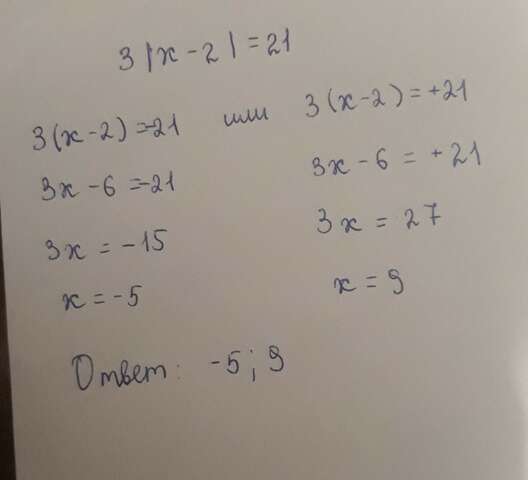 3 |x - 2| = 21
3(x-2) = -21 или 3(x-2) = +21
3x - 6 = -21 3x - 6 = +21
3x = -15 3x = 27
x = -5 x = 9
Ответ: -5; 9